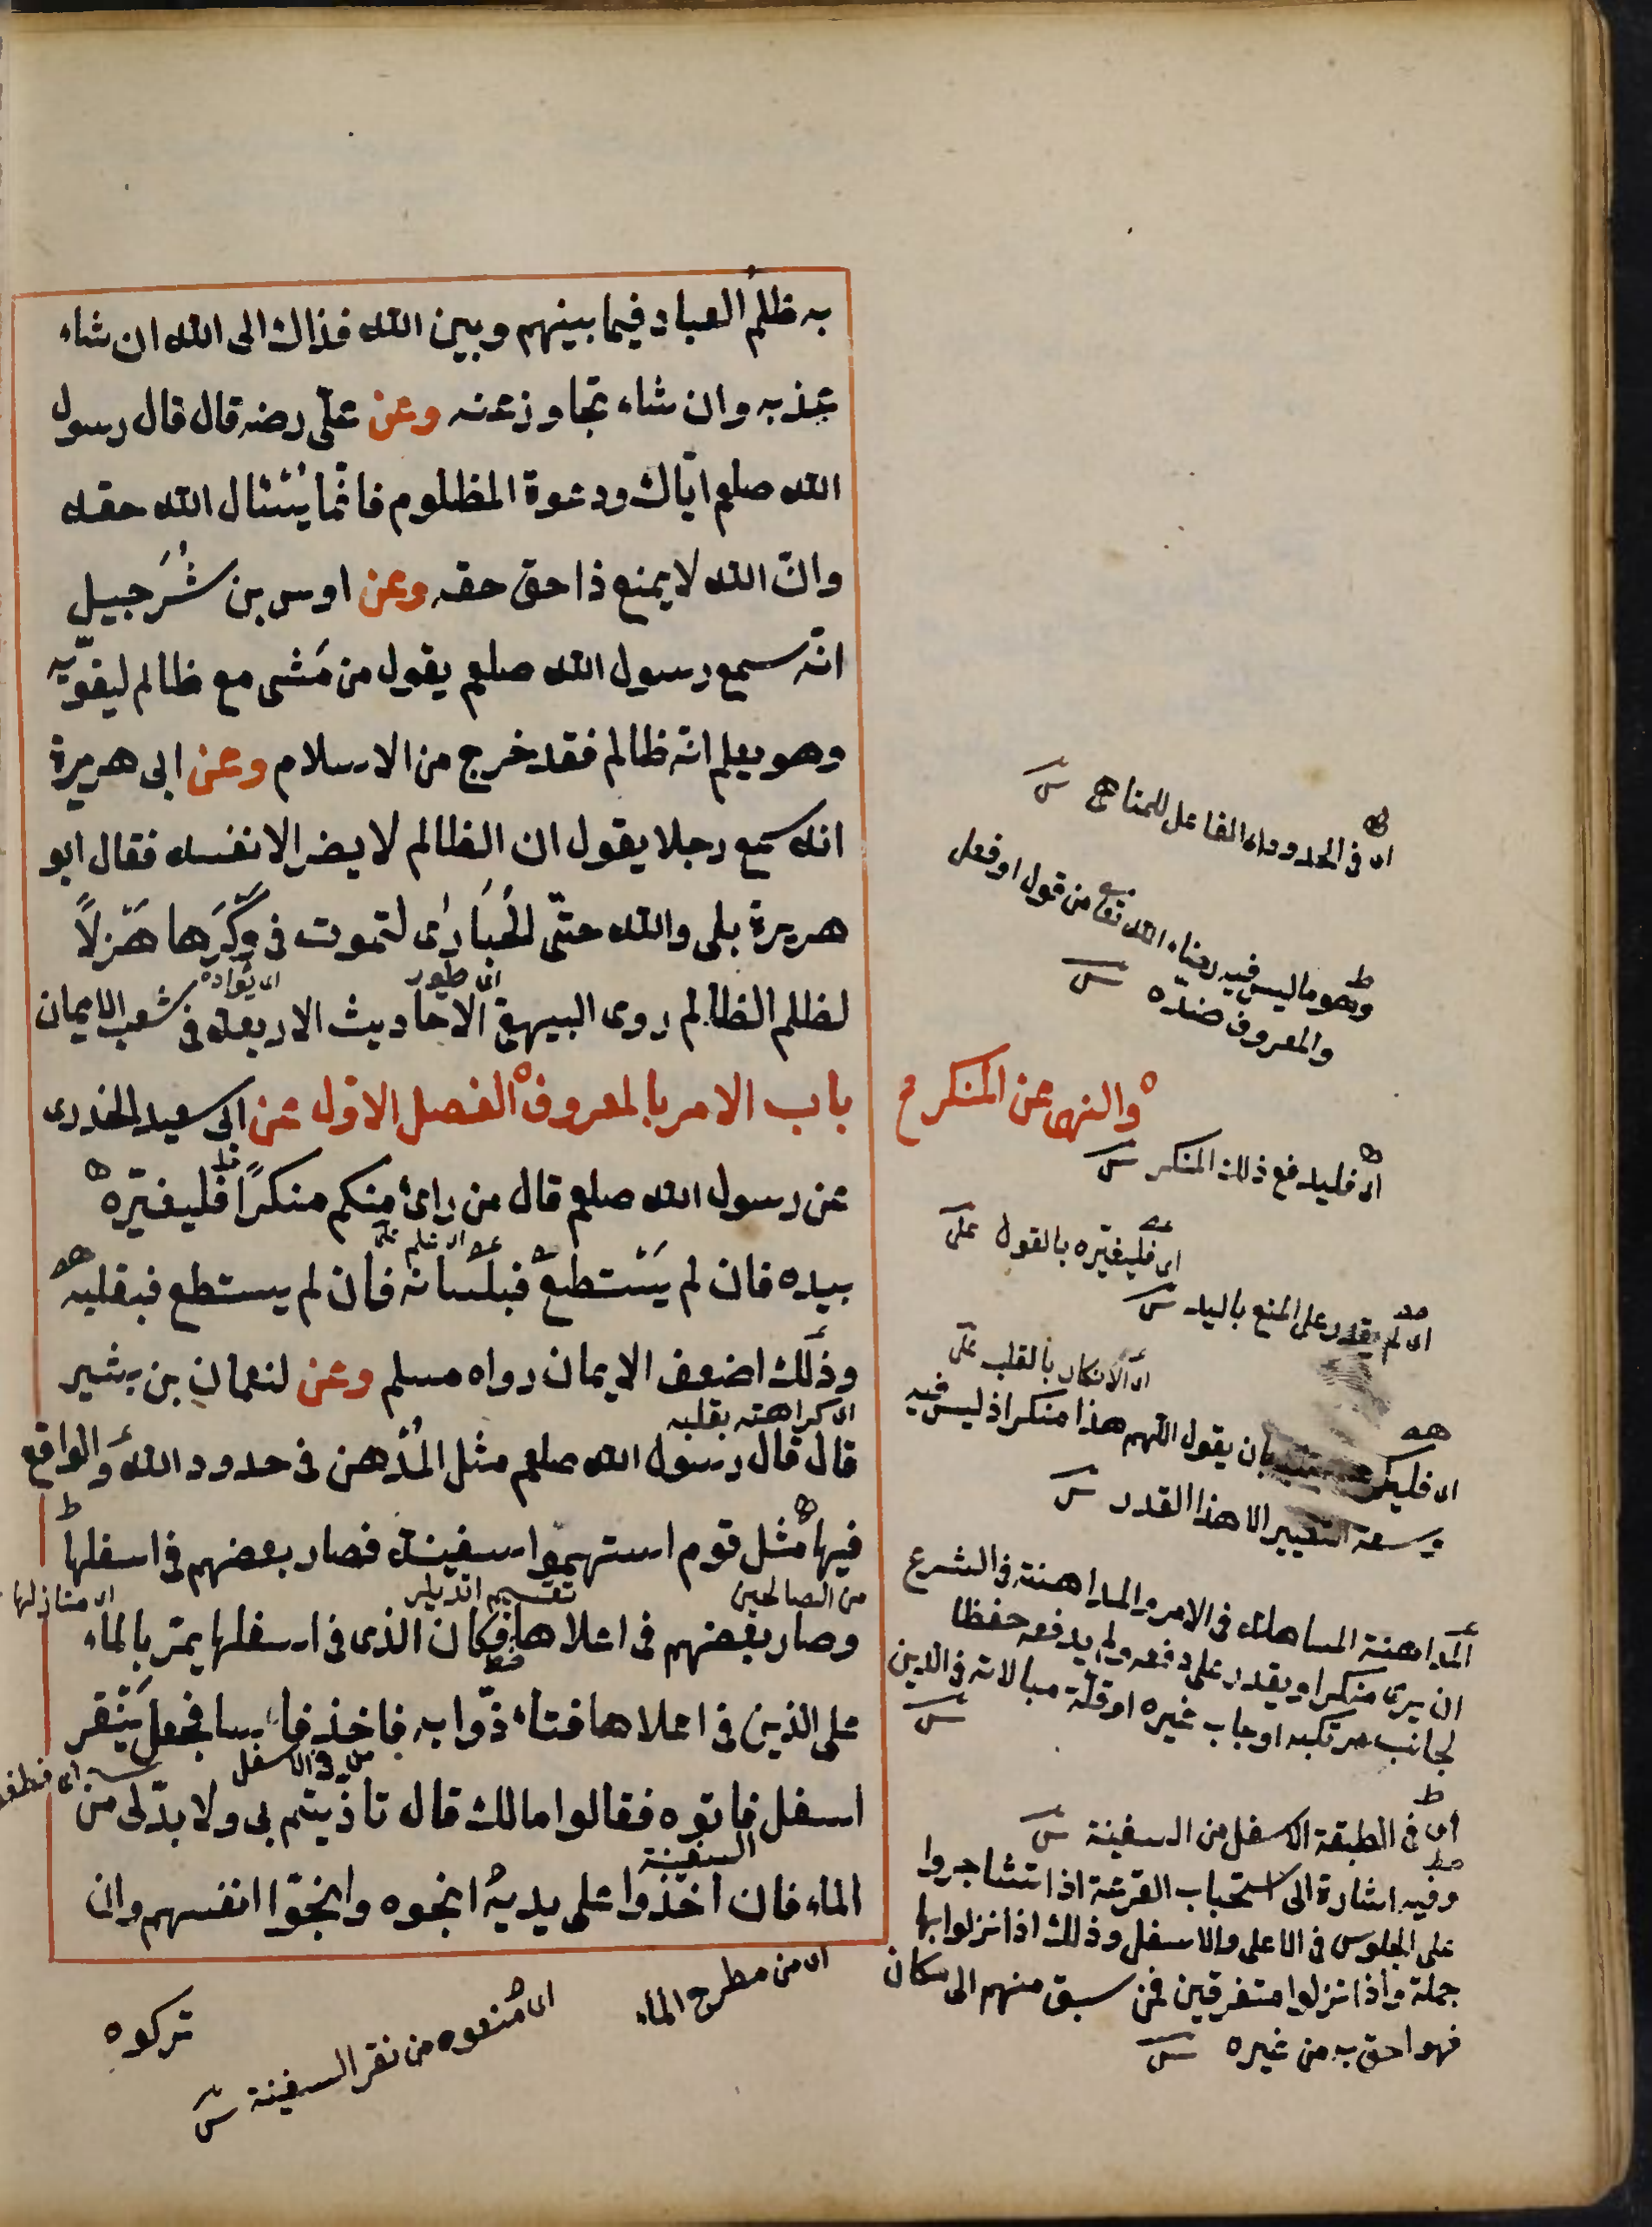 به ظلم العباد فيما بينهم وبين الله فذاك الى الله ان شاء
عذبه وان شاء تجاوز عنه وعن علىّ رضه قال قال رسول
الله صلعم ايّاك ودعوة المظلوم فانّما يسئال الله حقه
وانّ الله لا يمنع ذا حق حقه وعن اوس بن شُرَحبيل
انّه سمع رسول الله صلعم يقول من مَشى مع ظالم ليقويّه
وهو يعلم انّه ظالم فقد خرج من الاسلام وعن ابى هريرة
انه سمع رجلا يقول ان الظالم لا يضر الا نفسه فقال ابو
هريرة بلى والله حتّى الحُبَارٰى لتموت فى وَكْرَها هَزلاً
اى طيور
لظلم الظالم روى البيهقى الاحاديث الاربعة فى شعب الايمان
باب الامر بالمعروف الفصل الاوّل عن ابى سعيد الخدرى
عن رسول الله صلعم قال من راى منكم منكرًا فليغيّره
بيده فان لم يَسْتطع فبلسانه فان لم يستطع فبقلبه
وذلك اضعف الايمان رواه مسلم وعن لنعمان بن بشير
اى كراهته بقلبه
قال قال رسول الله صلعم مثل المُدْهن فى حدود الله والواقع
فيها مثل قوم استهموا سفينة فصار بعضهم فى اسفلها
من الصالحين
وصار بعضهم فى اعلاها فكان الذى فى اسفلها يمرّ بالماء
على الذين فى اعلاها فتاذّوا به فاخذ فاسا فجعل ينقر
من فى الاسفل
اسفل فاتوه فقالوا مالك قال تاذّيتم بى ولا بدّلى من
السفينة
الماء فان اخذوا على يديه انجوه وانجوّا انفسهم وان
تركوه
اى منعوه من نقر السفينة
اى من مطرح الماء
اى فى الحدود اى الفاعل للمناهى
وهو ما ليس فيه رضاء الله تعا من قول او فعل
والمعروف ضدّه
والنهى عن المنكر
اى فليدفع ذلك المنكر
اى فليغيّره بالقول على
اى لم يقدر على المنع باليد
اى الانكار بالقلب على
بان يقول اللهم هذا منكر اذ ليس فيه
وسعة التغيير الا هذا القدر
المداهنة المساهلة فى الامر والمداهنة فى الشرع
ان يرى منكرا ويقدر على دفعه ولم يدفعه حفظا
لجانب مرتكبه او جاب غيره او قلّة مبالاته فى الدين
اى فى الطبقة الاسفل من السفينة
وفيه اشارة الى استحباب القرعة اذا تشاجروا
على الجلوس فى الاعلى والاسفل وذلك اذا نزلوا بها
جملة واذا نزلوا متفرقين فمن سبق منهم الى مكان
فهو احق به من غيره